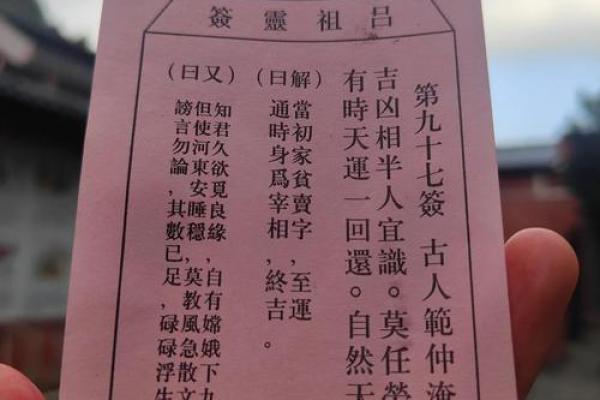 呂祖靈簽
第九十七簽 古人範仲淹
吉凶相半人宜識。莫任勞
有時天運一回還。自然天
(解曰)
當初家貧賣字,至運
通時身爲宰相,終吉。
(又曰)
知君久欲覓良緣,自有嫦娥下九
但使河東安睡穩,莫教風急散文
謗言勿論,其數已足,碌碌浮生